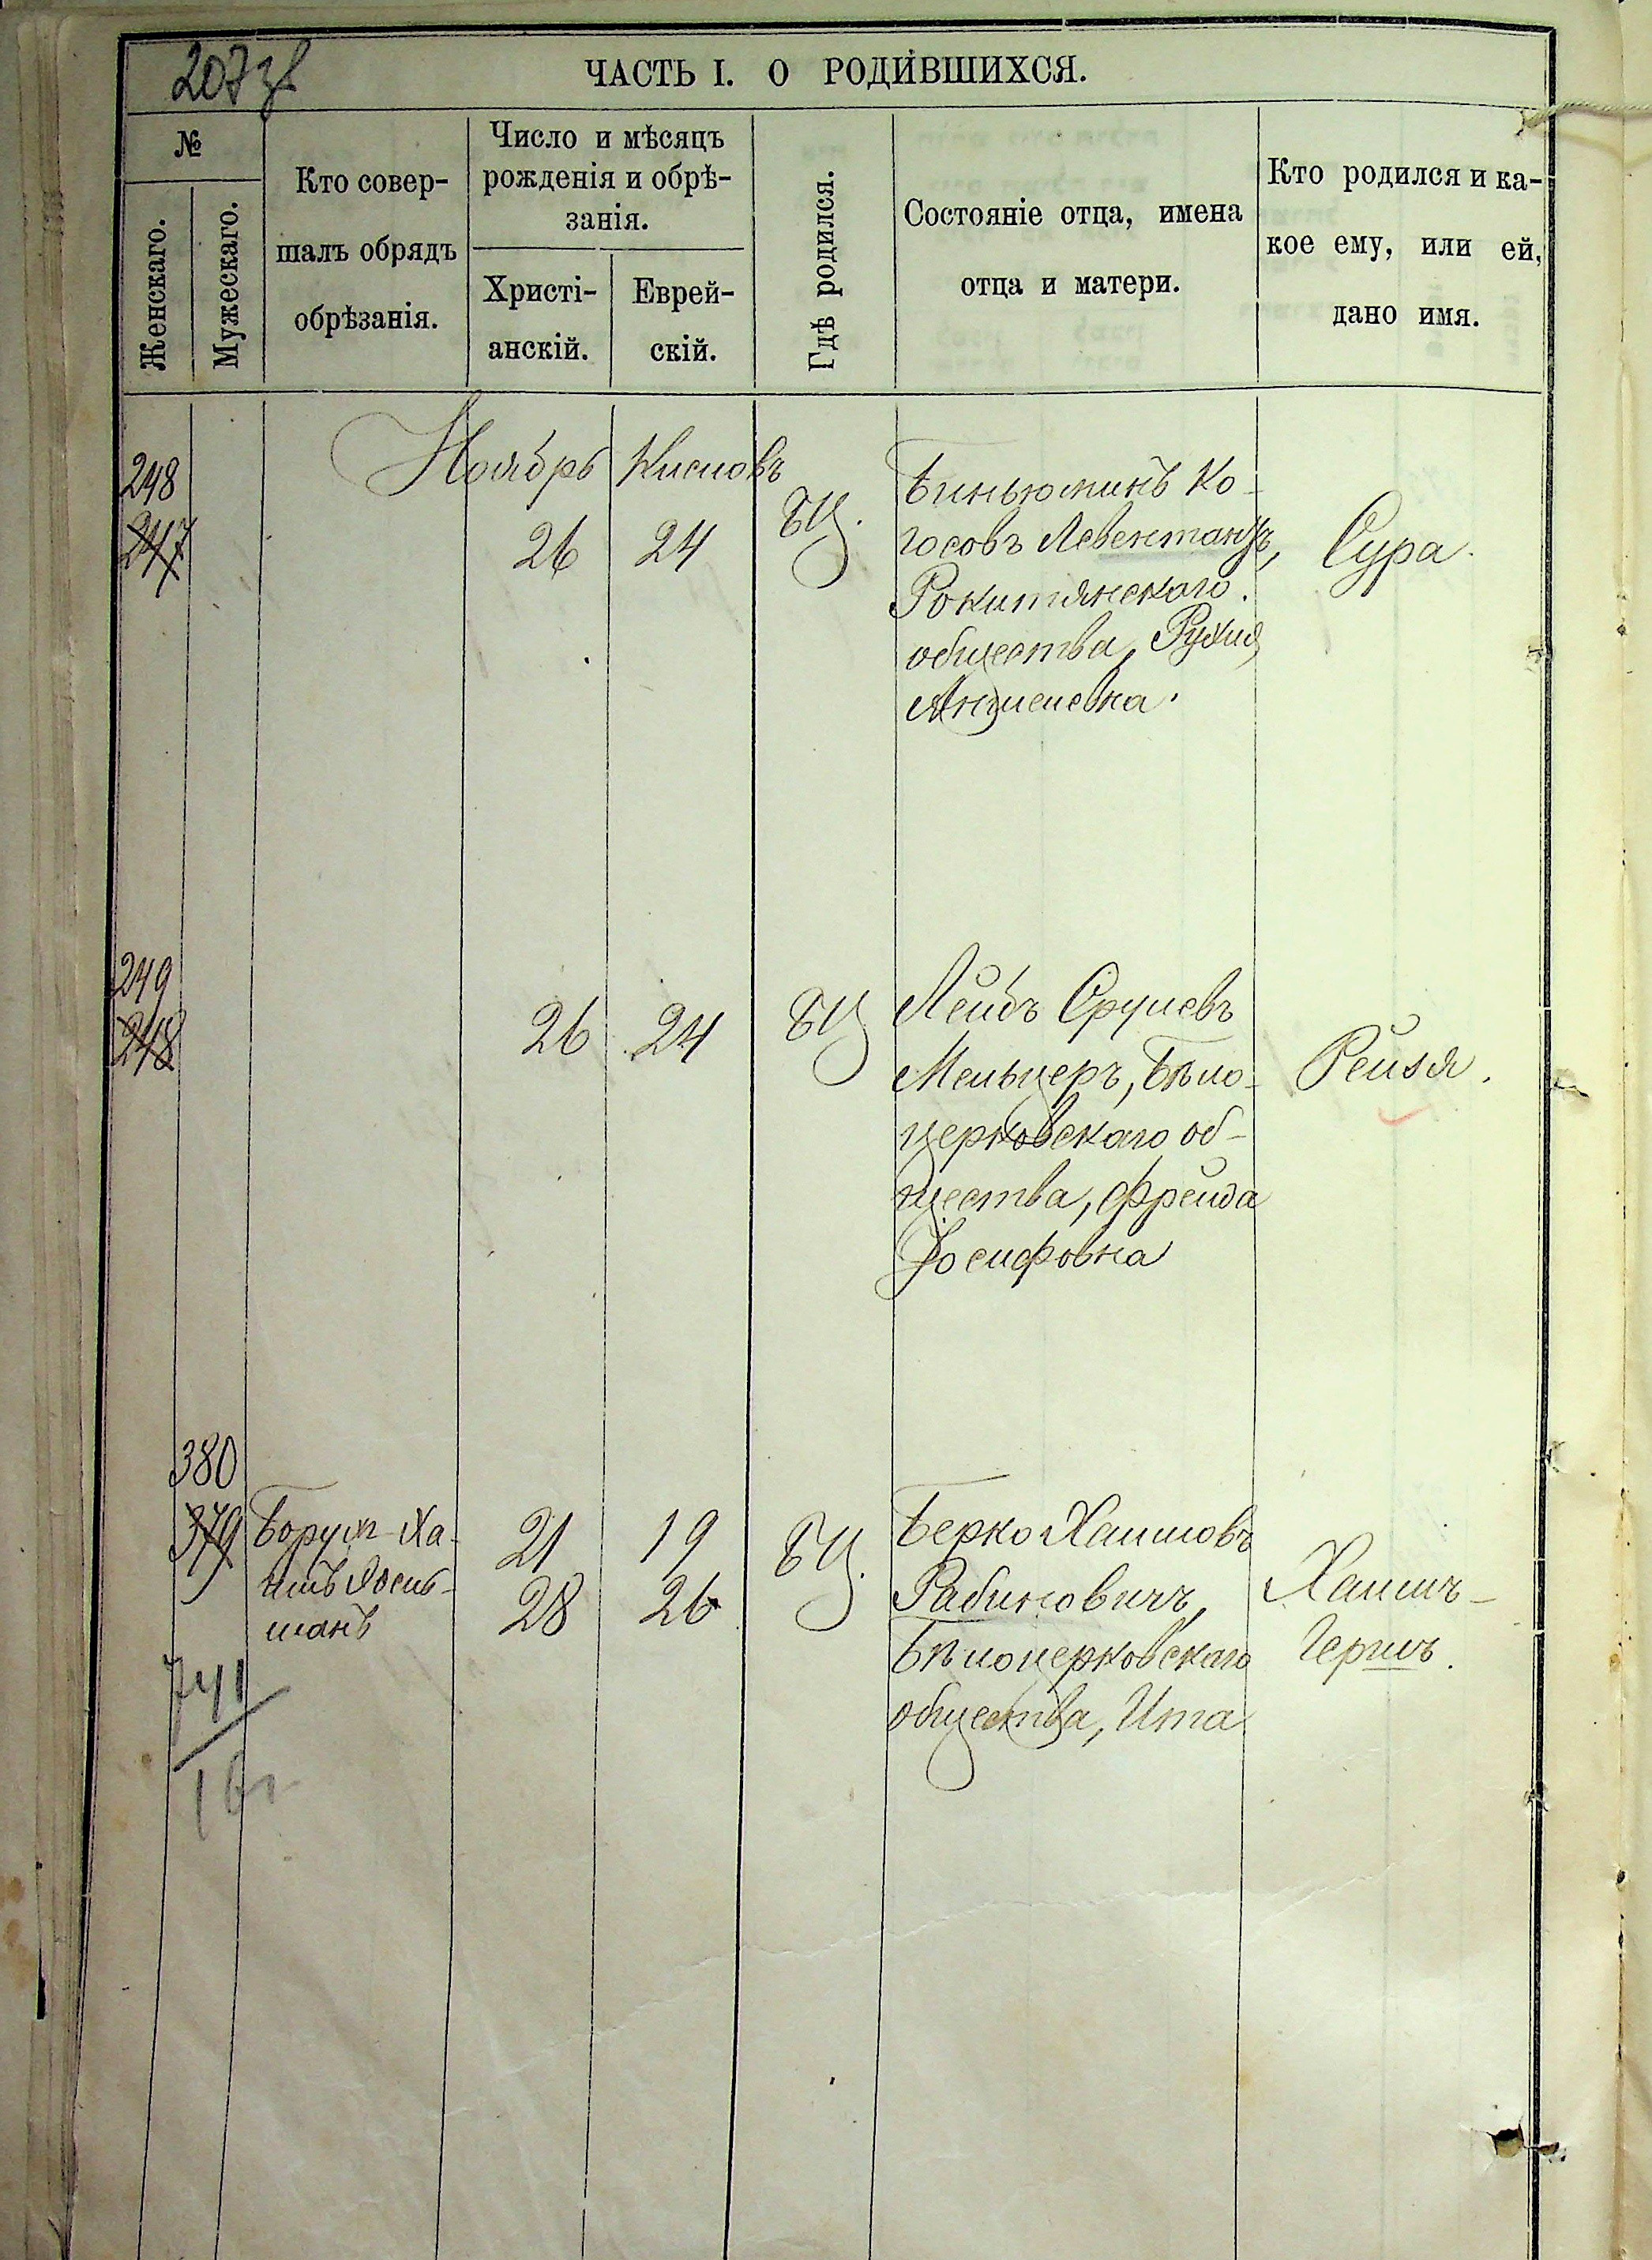 207 зв
ЧАСТЬ I. О РОДИВШИХСЯ.
№
Женскаго.
Мужескаго.
Кто совер-
шалъ обрядъ
обрѣзанія.
Число и мѣсяцъ
рожденія и обрѣ-
занія.
Христі-
анскій.
Еврей-
скій.
Гдѣ родился.
Состояніе отца, имена
отца и матери.
Кто родился и ка-
кое ему, или ей,
дано имя.
Ноябрь Кислевъ
248
247
26 24 БЦ.
Биньюминъ Ко-
госовъ Левентанъ,
Рокитянскаго
общества, Рухля
Аншелевна.
Сура.
249
248
26 24 БЦ
Лейбъ Срулевъ
Мельцеръ, Бѣло-
церковскаго об-
щества, Фрейда
Іосифовна
Рейзя.
380
379
Борухъ-Ха-
имъ
21 19 БЦ.
28 26
Берко Хаимовъ
Рабиновичъ,
Бѣлоцерковскаго
общества, Ита
Хаимъ-
Гершъ.
741